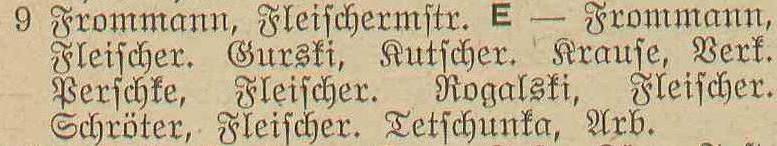 9 Frommann, Fleischermstr. E — Frommann,
Fleischer. Gurski, Kutscher. Krause, Verk.
Perschke, Fleischer. Rogalski, Fleischer.
Schröter, Fleischer. Tetschunka, Arb.